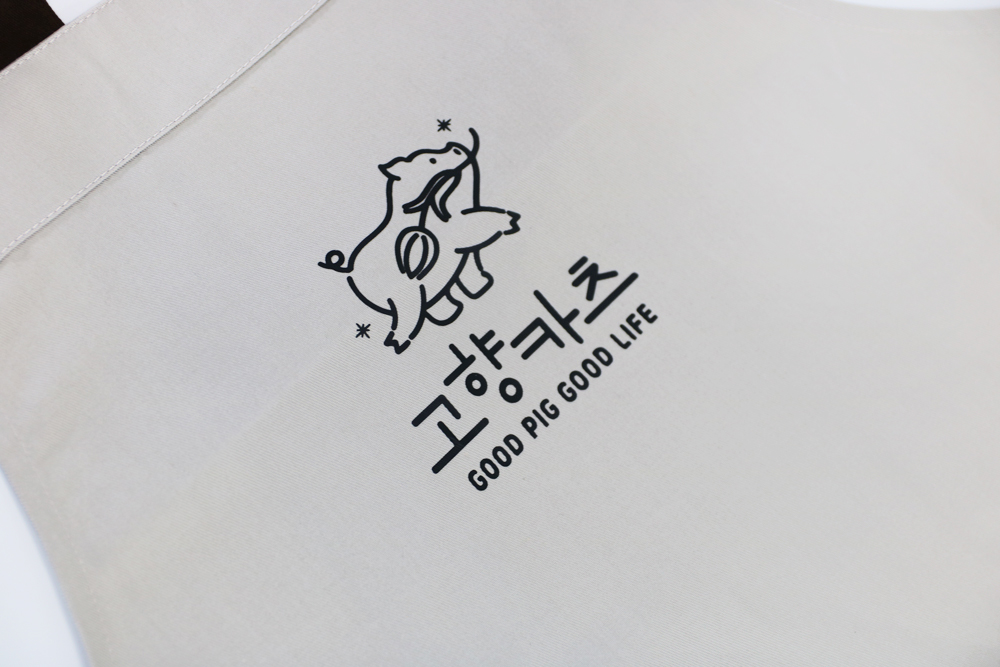 고향카츠
GOOD PIG GOOD LIFE